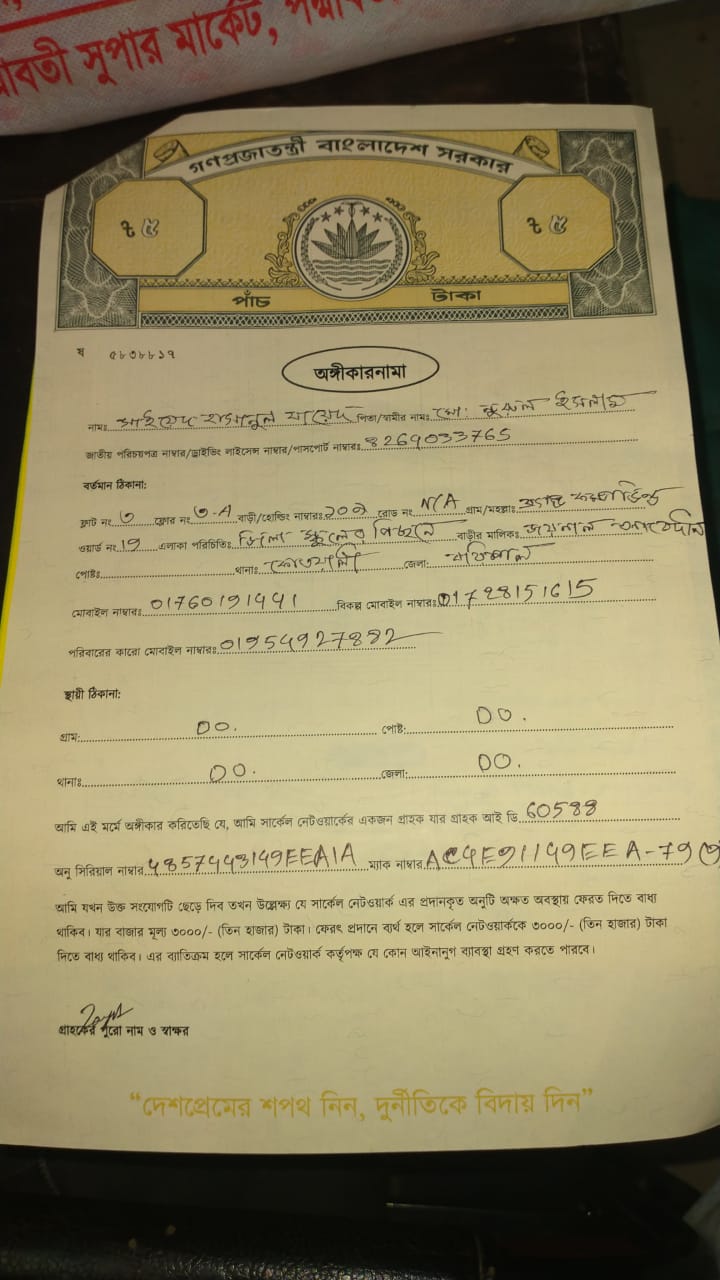 সুপার মার্কেট,
গণপ্রজাতন্ত্রী বাংলাদেশ সরকার
৳ ৫ ৳ ৫
পাঁচ টাকা
ষ ৫৮৩৮৮১৭
অঙ্গীকারনামা
নামঃ সাইয়েদ হাসানুল যায়েদ পিতা/স্বামীর নামঃ মো: নুরুল ইসলাম
জাতীয় পরিচয়পত্র নাম্বার/ড্রাইভিং লাইসেন্স নাম্বার/পাসপোর্ট নাম্বারঃ 8269033765
বর্তমান ঠিকানা:
ফ্লাট নং ৩ ফ্লোর নং ৩-A বাড়ী/হোল্ডিং নাম্বারঃ রোড নং N/A গ্রাম/মহল্লাঃ
ওয়ার্ড নং 19 এলাকা পরিচিতিঃ জিলা স্কুলের পিছনে বাড়ীর মালিকঃ জয়নাল আবেদীন
পোষ্টঃ থানাঃ কোতয়ালী জেলা: বরিশাল
মোবাইল নাম্বারঃ 01760191441 বিকল্প মোবাইল নাম্বারঃ 01728151615
পরিবারের কারো মোবাইল নাম্বারঃ 01954927882
স্থায়ী ঠিকানা:
গ্রাম: DO. পোষ্ট: DO.
থানাঃ DO. জেলা: DO.
আমি এই মর্মে অঙ্গীকার করিতেছি যে, আমি সার্কেল নেটওয়ার্কের একজন গ্রাহক যার গ্রাহক আই ডি 60588
অনু সিরিয়াল নাম্বার 4857443149EEA1A ম্যাক নাম্বার AC4E91149EEA-79
আমি যখন উক্ত সংযোগটি ছেড়ে দিব তখন উল্লেক্ষ্য যে সার্কেল নেটওয়ার্ক এর প্রদানকৃত অনুটি অক্ষত অবস্থায় ফেরত দিতে বাধ্য
থাকিব। যার বাজার মূল্য ৩০০০/- (তিন হাজার) টাকা। ফেরৎ প্রদানে ব্যর্থ হলে সার্কেল নেটওয়ার্ককে ৩০০০/- (তিন হাজার) টাকা
দিতে বাধ্য থাকিব। এর ব্যতিক্রম হলে সার্কেল নেটওয়ার্ক কর্তৃপক্ষ যে কোন আইনানুগ ব্যাবস্থা গ্রহণ করতে পারবে।
গ্রাহকের পুরো নাম ও স্বাক্ষর
“দেশপ্রেমের শপথ নিন, দুর্নীতিকে বিদায় দিন”